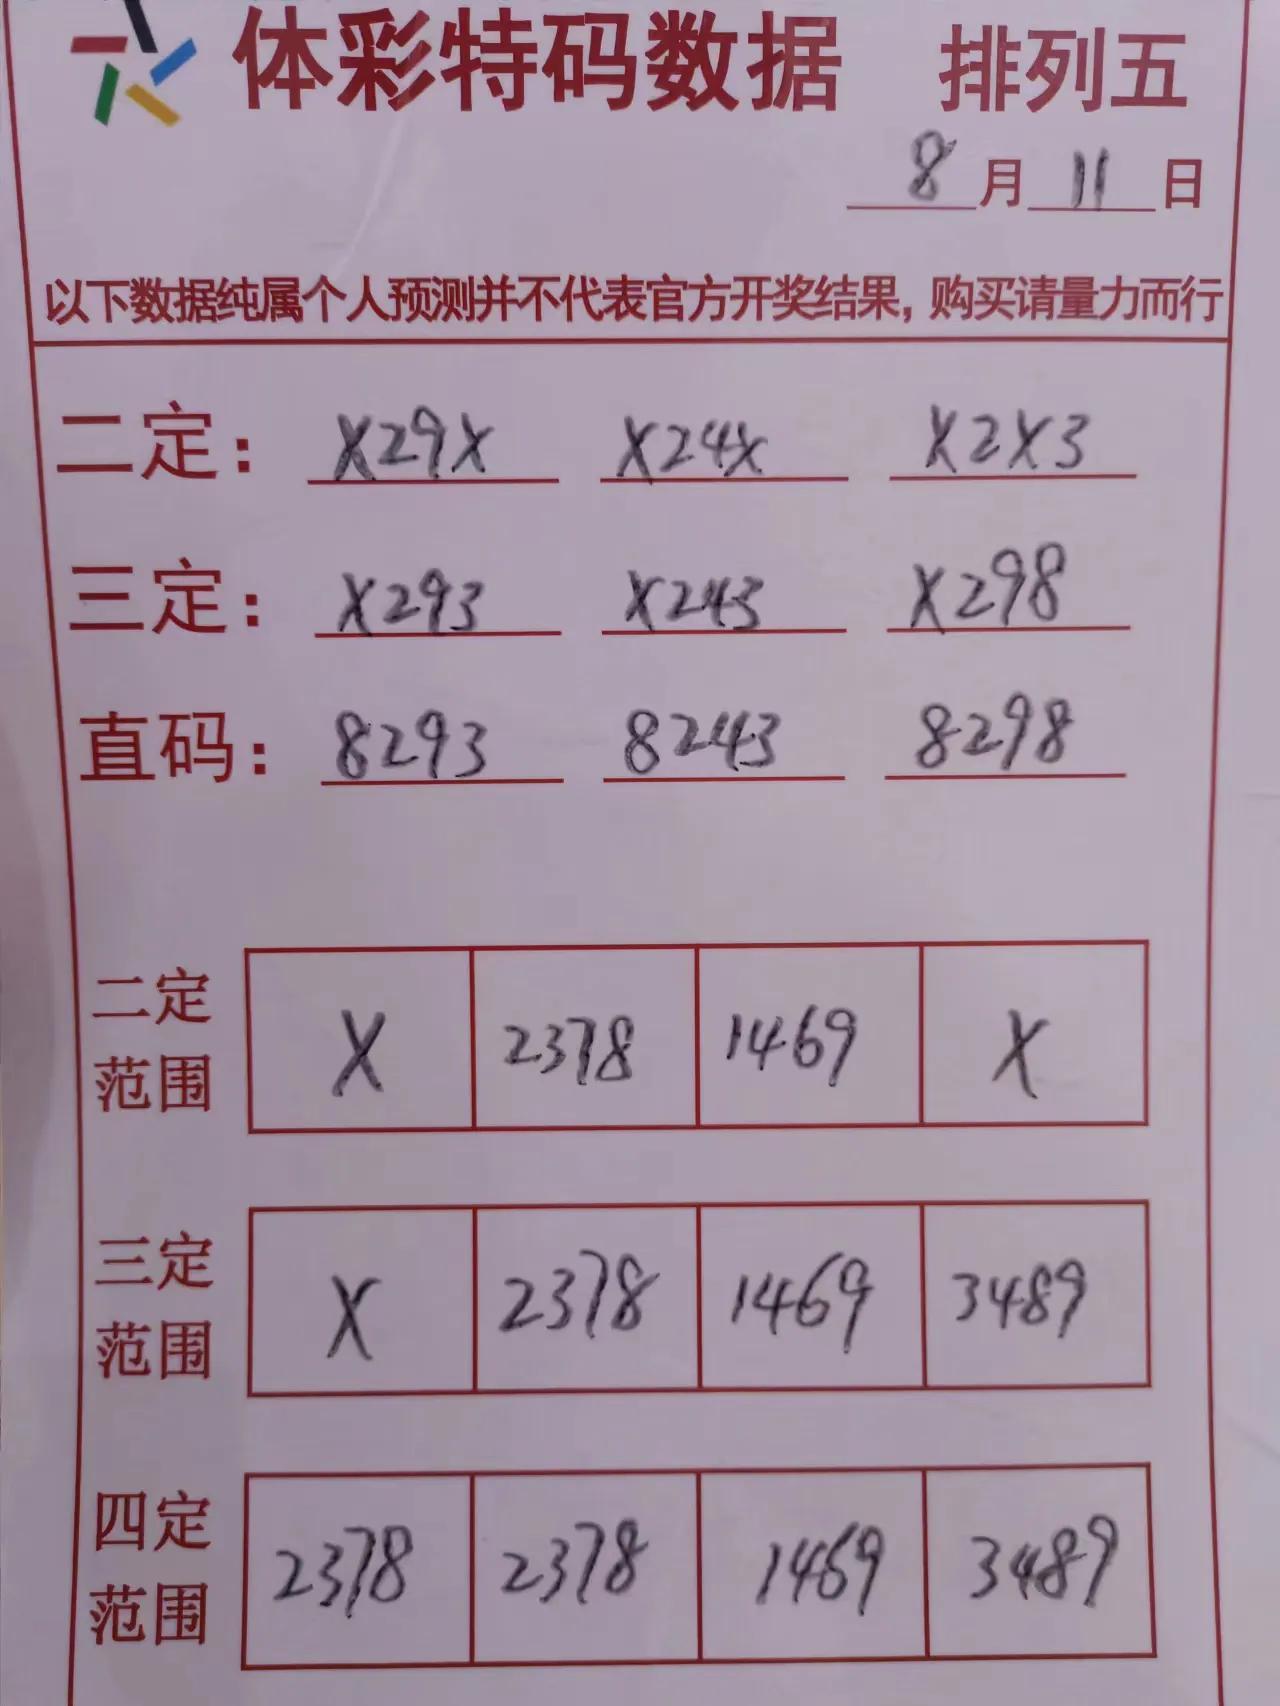 体彩特码数据 排列五
8月11日
以下数据纯属个人预测并不代表官方开奖结果，购买请量力而行
二定： X29X X24X X2X3
三定： X293 X243 X298
直码： 8293 8243 8298
二定范围 X 2378 1469 X
三定范围 X 2378 1469 3489
四定范围 2378 2378 1469 3489